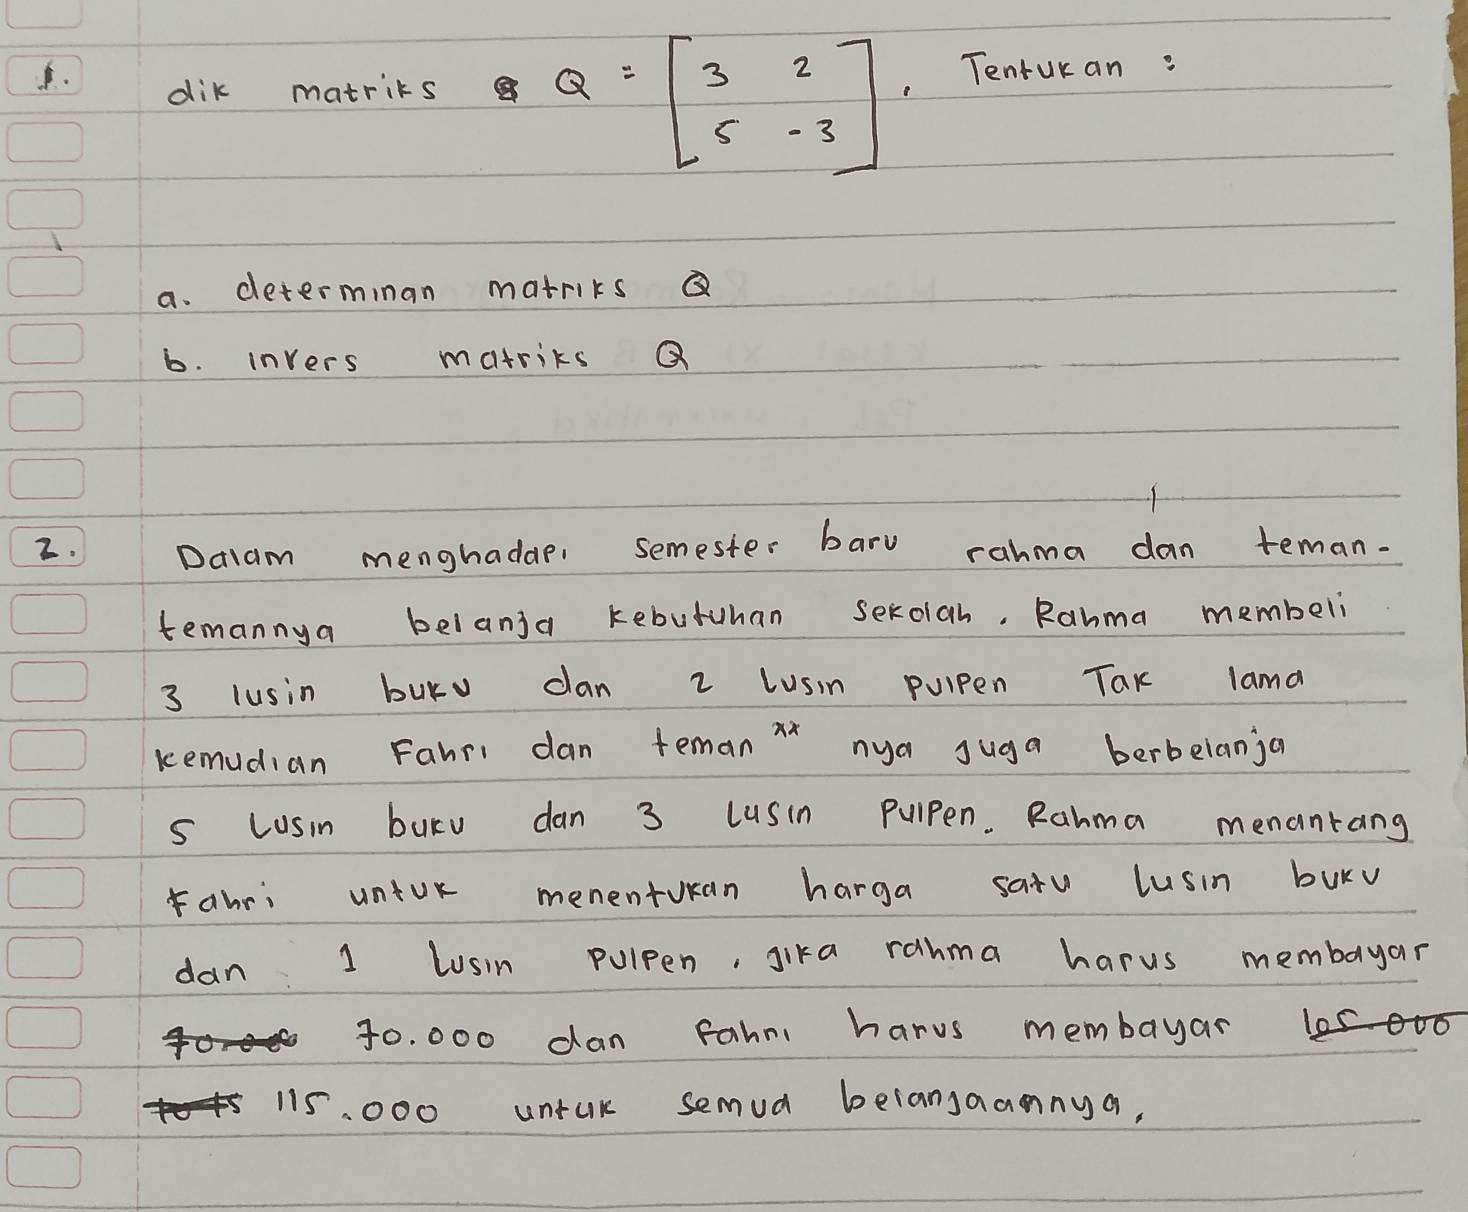 1. dik matriks Q = [ 3 2 ] . Tentukan :
[ 5 -3 ]
a. determinan matriks Q
b. invers matriks Q
2. Dalam menghadapi semester baru rahma dan teman-
temannya belanja kebutuhan sekolah. Rahma membeli
3 lusin buku dan 2 lusin pulpen Tak lama
kemudian Fahri dan teman xx nya juga berbelanja
5 lusin buku dan 3 lusin pulpen. Rahma menantang
Fahri untuk menentukan harga satu lusin buku
dan 1 lusin pulpen, jika rahma harus membayar
70.000 dan Fahri harus membayar
115.000 untuk semua belanjaannya.